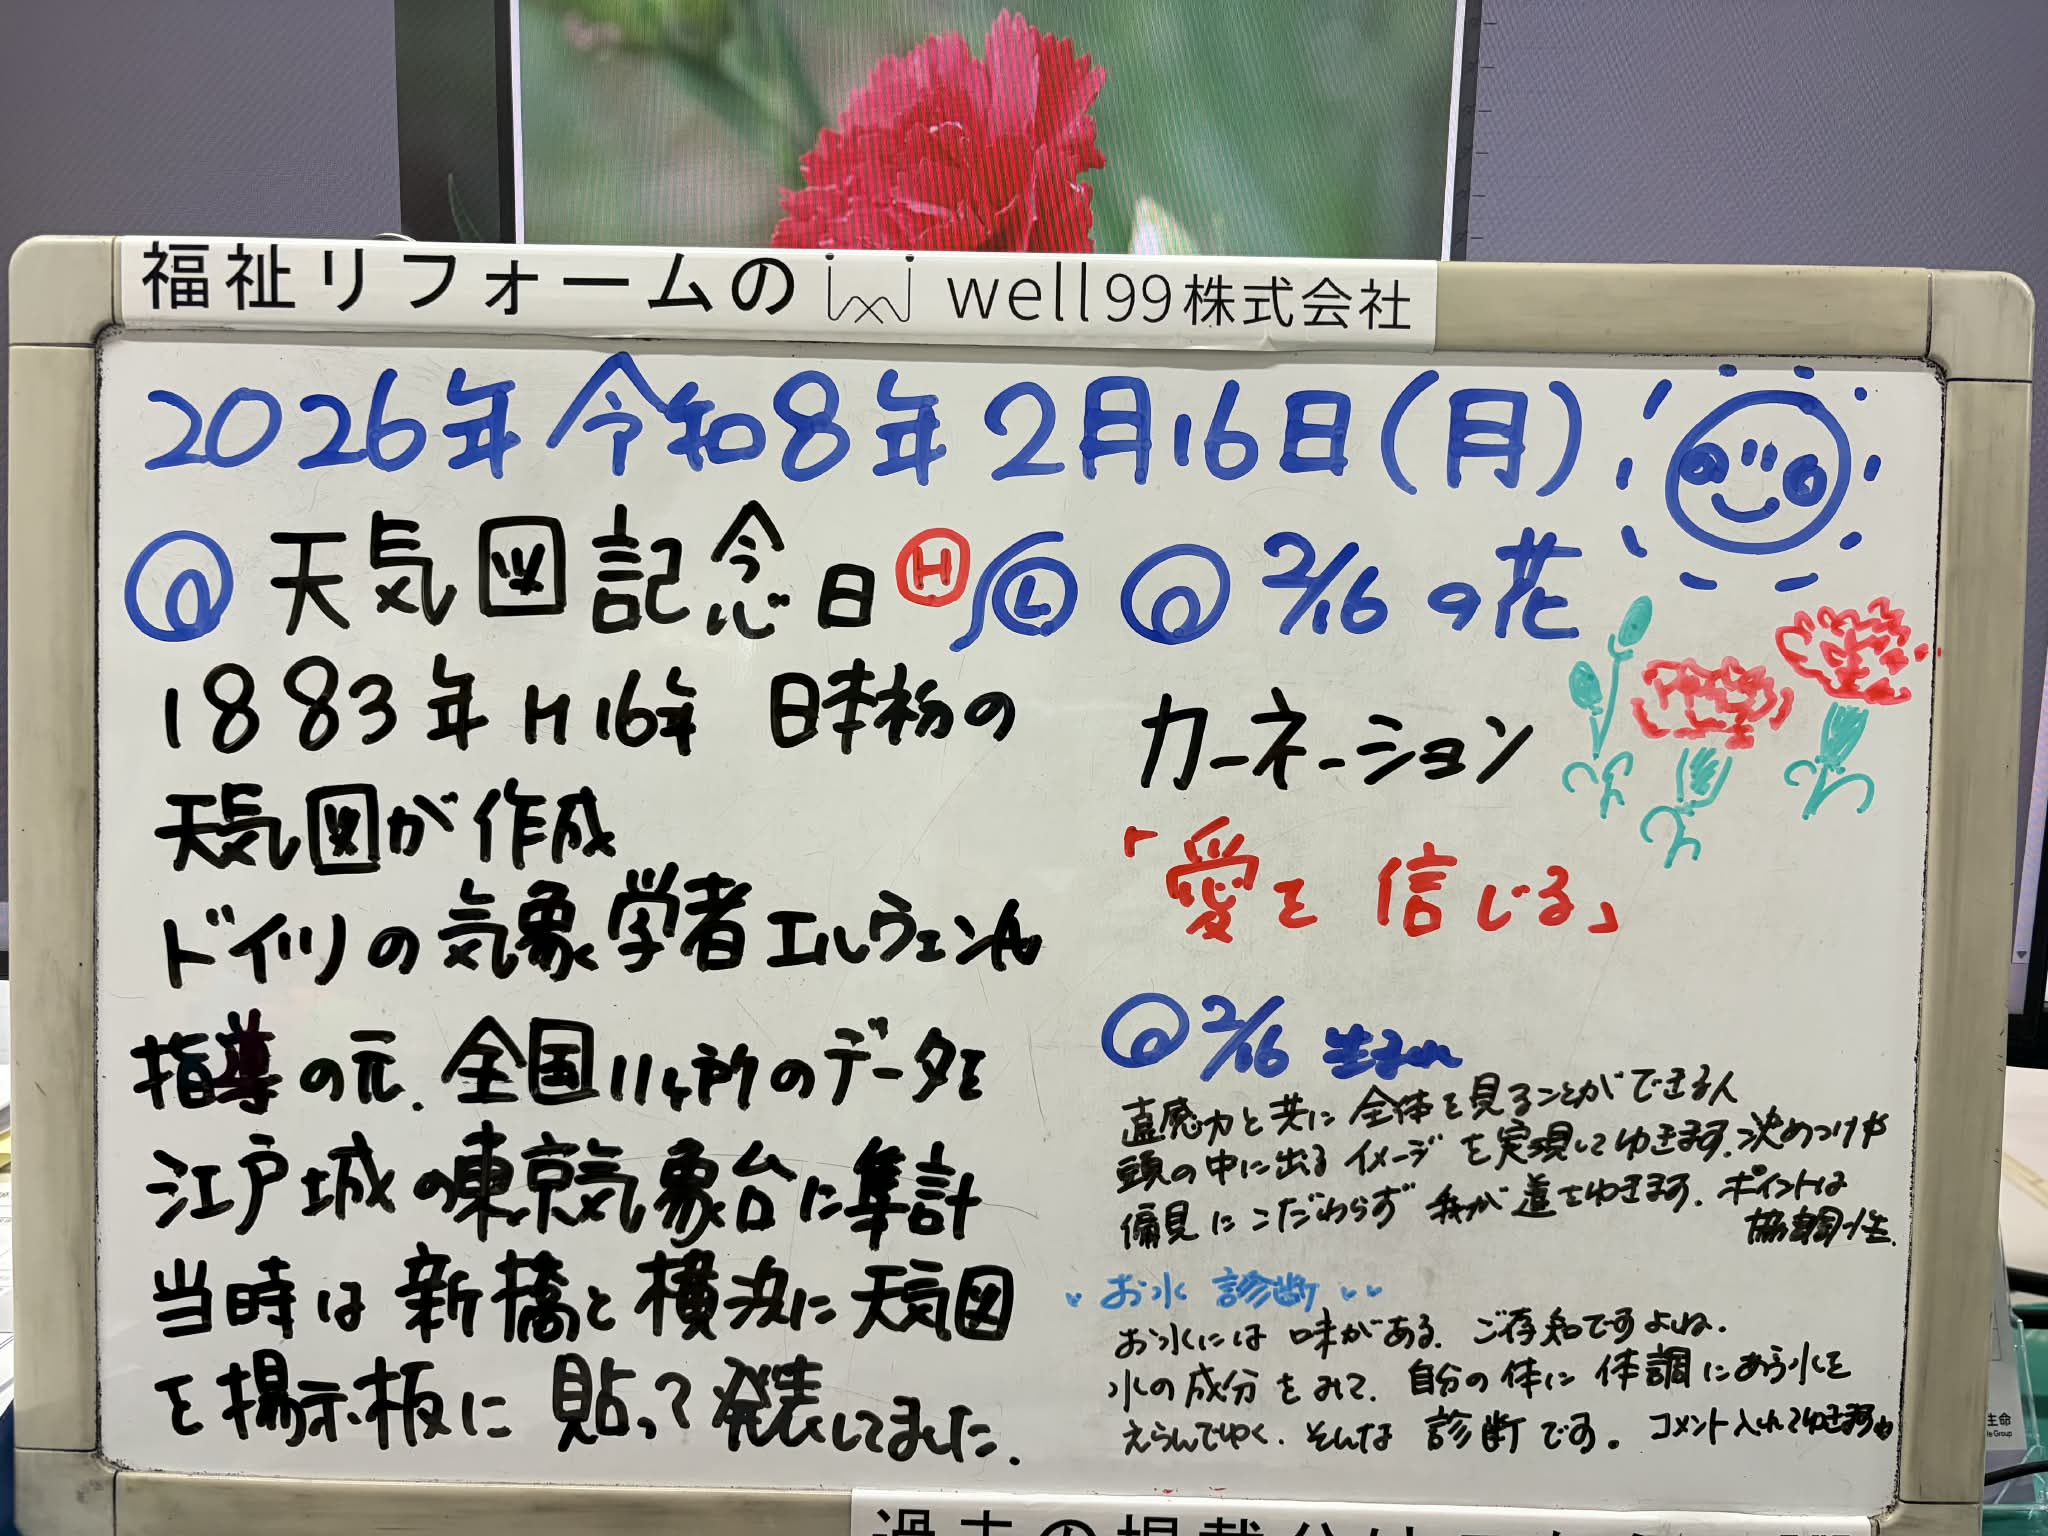 福祉リフォームの well99株式会社
2026年 令和8年 2月16日(月)
天気図記念日 H L
1883年 M16年 日本初の
天気図が作成
ドイツの気象学者エルヴィン
指導の元、全国11ヶ所のデータを
江戸城の東京気象台に集計
当時は新橋と横浜に天気図
を掲示板に貼って発表してました.
2/16の花
カーネーション
「愛を信じる」
2/16 生まれ
直感力と共に全体を見ることができる人
頭の中に出るイメージを実現してゆきます.決めつけや
偏見にこだわらず我が道をゆきます.ポイントは
協調性.
お水診断
お水には味がある.ご存知ですよね.
水の成分をみて.自分の体に体調にあう水を
えらんでゆく.そんな診断です。コメント入れてゆきます
生命